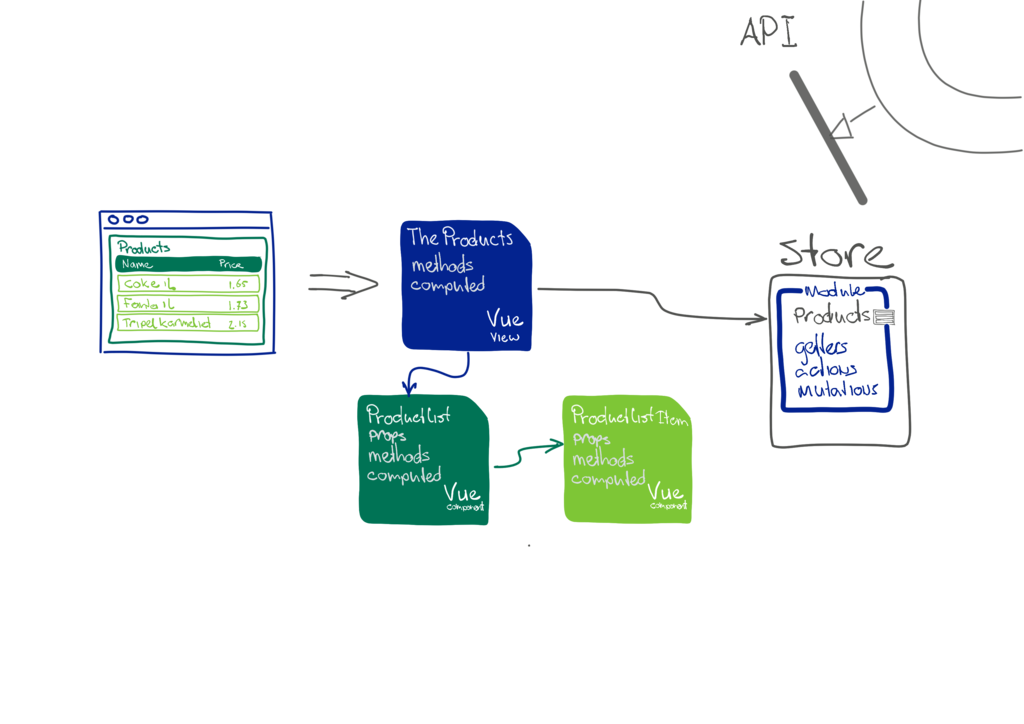 API
Products
Name Price
Coke 1L 1.65
Fanta 1L 1.73
Tripel karmeliet 2.15
The Products
methods
computed
Vue
view
Store
Module
Products
getters
actions
mutations
Product list
props
methods
computed
Vue
component
Product list Item
props
methods
computed
Vue
component